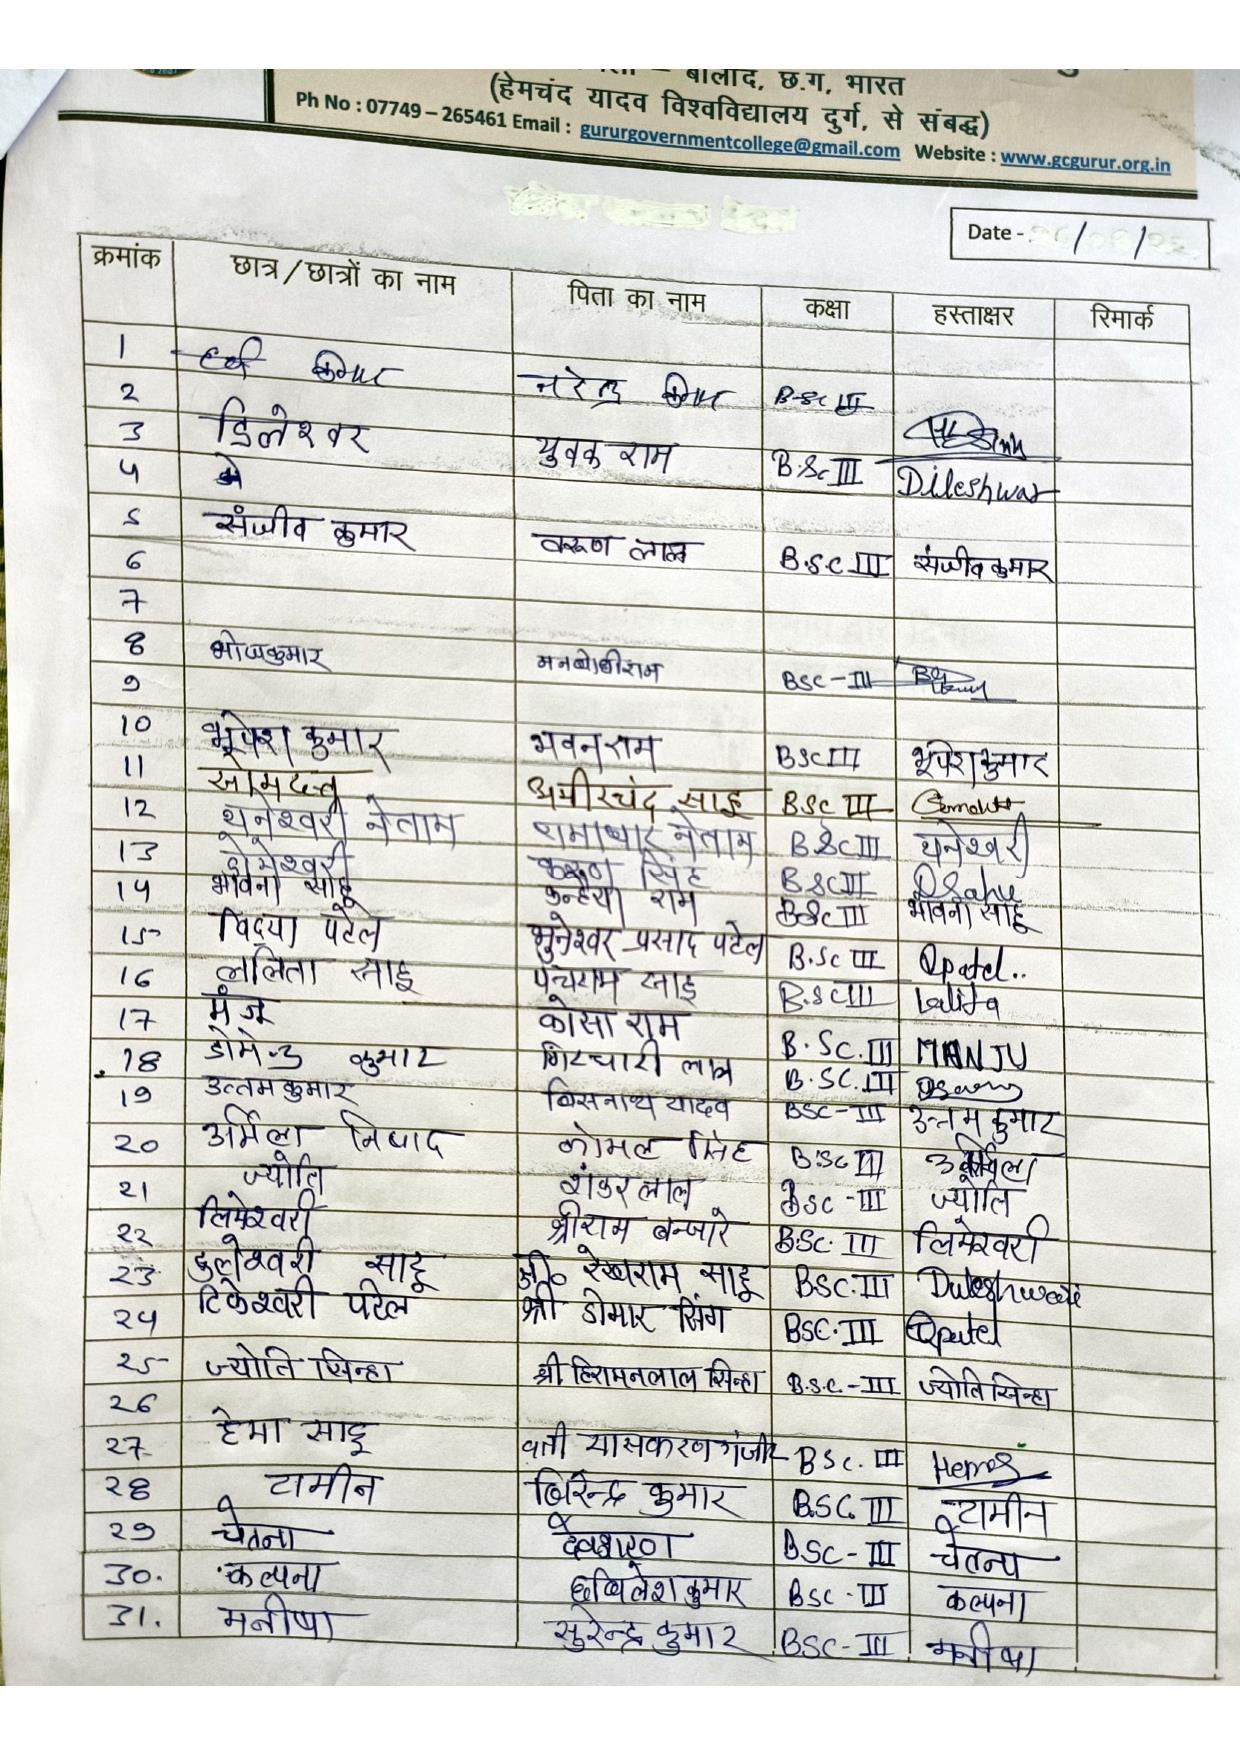 बालोद, छ.ग, भारत
(हेमचंद यादव विश्वविद्यालय दुर्ग, से संबद्ध)
Ph No : 07749 – 265461 Email : gururgovernmentcollege@gmail.com Website : www.gcgurur.org.in
Date -
क्रमांक छात्र/छात्रों का नाम पिता का नाम कक्षा हस्ताक्षर रिमार्क
1 कुमार नरेन्द्र कुमार B.Sc III
2
3 डिलेश्वर युवक राम B.Sc III Dileshwar
4
5 संजीव कुमार वरूण लाल B.S.C III संजीव कुमार
6
7
8 भोजकुमार मनबोधीराम BSC - III
9
10 भूपेश कुमार भवनराम BSC III भूपेश कुमार
11 सोमदत्त अमीरचंद साहू BSC III
12 थनेश्वरी नेताम रामाधार नेताम B.Sc III थनेश्वरी
13 डोमेश्वरी करूण सिंह B.Sc III Dsahu
14 भावना साहू कन्हैया राम B.Sc III भावना साहू
15 विद्या पटेल भुनेश्वर प्रसाद पटेल B.Sc III Qpatel..
16 ललिता साहू पंचराम साहू B.Sc III Lalita
17 मंजू कोसा राम B.Sc. III MANJU
18 कुमार गिरधारी लाल B.SC. III
19 उत्तम कुमार बिसनाथ यादव BSC - III उत्तम कुमार
20 उर्मिला निषाद कोमल सिंह B.Sc III उर्मिला
21 ज्योति शंकर लाल BSC - III ज्योति
22 लिमेश्वरी श्रीराम बन्जारे B.SC. III लिमेश्वरी
23 डुलेश्वरी साहू श्री० रेखराम साहू BSC. III Duleshwari
24 टिकेश्वरी पटेल श्री डोमार सिंग BSC. III Qpatel
25 ज्योति सिन्हा श्री हिरामनलाल सिन्हा B.S.C - III ज्योति सिन्हा
26
27 हेमा साहू BSC. III Hema
28 टामीन बिरेन्द्र कुमार B.SC. III टामीन
29 चेतना देवशरण BSC - III चेतना
30. कल्पना छबिलेश कुमार BSC - III कल्पना
31. मनीषा सुरेन्द्र कुमार BSC - III मनीषा